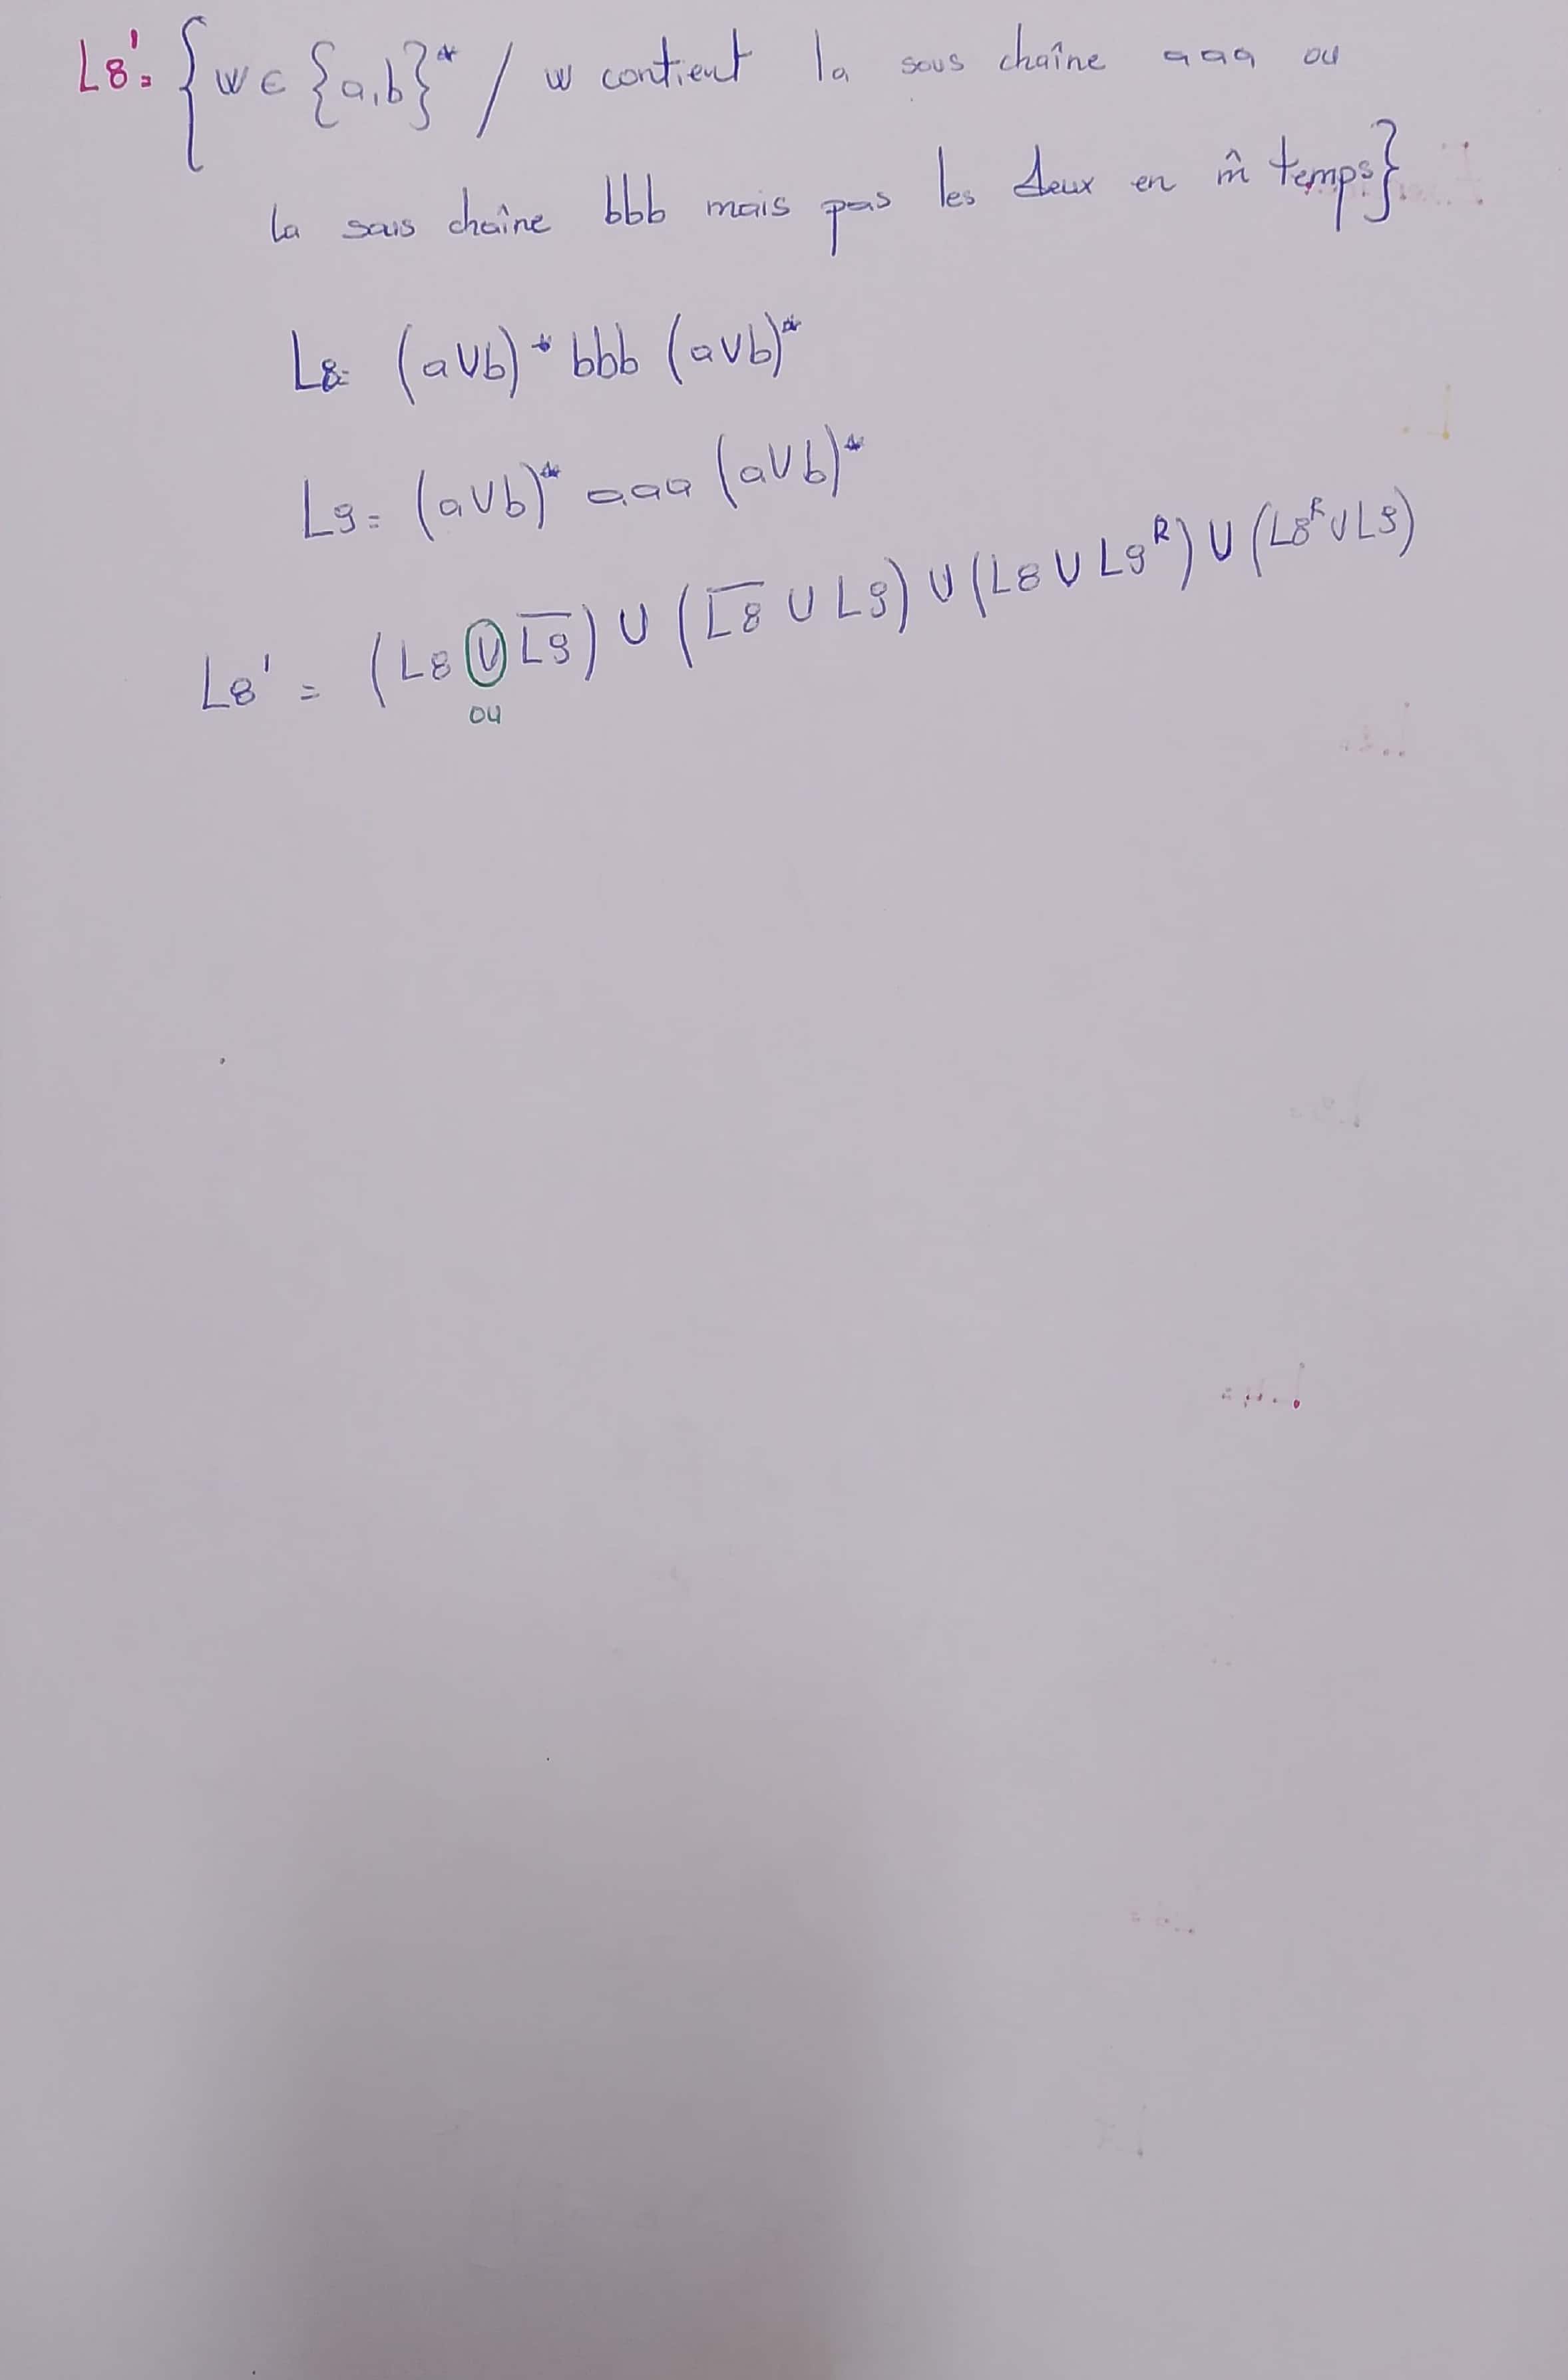 L8'= {w ∈ {a,b}* / w contient la sous chaîne aaa ou
la sous chaîne bbb mais pas les deux en m̂ temps}
L8= (a∪b)* bbb (a∪b)*
L9= (a∪b)* aaa (a∪b)*
L8' = (L8 ∪ L̅9̅) ∪ (L̅8̅ ∪ L9) ∪ (L8 ∪ L9ᴿ) ∪ (L8ᴿ ∪ L9)
ou